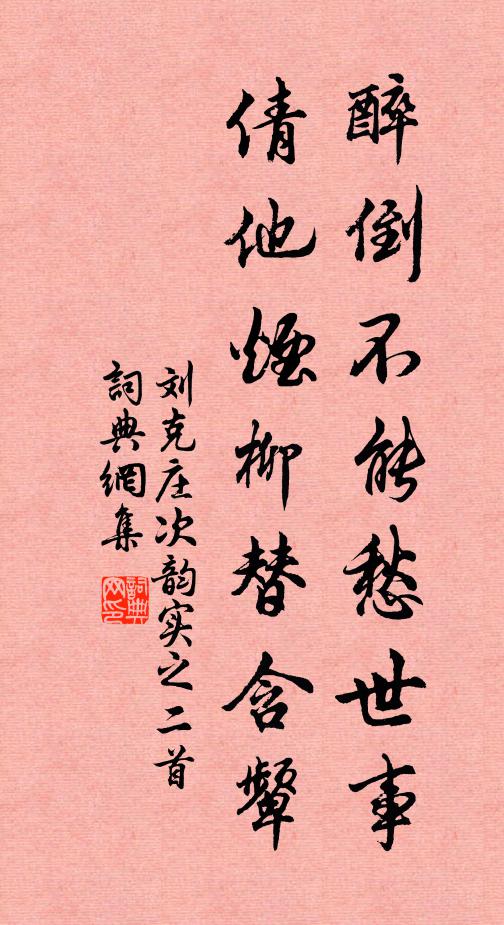 醉倒不能愁世事
倩他煙柳替含顰
刘克庄次韵实之二首
詞典網集
詞典網印